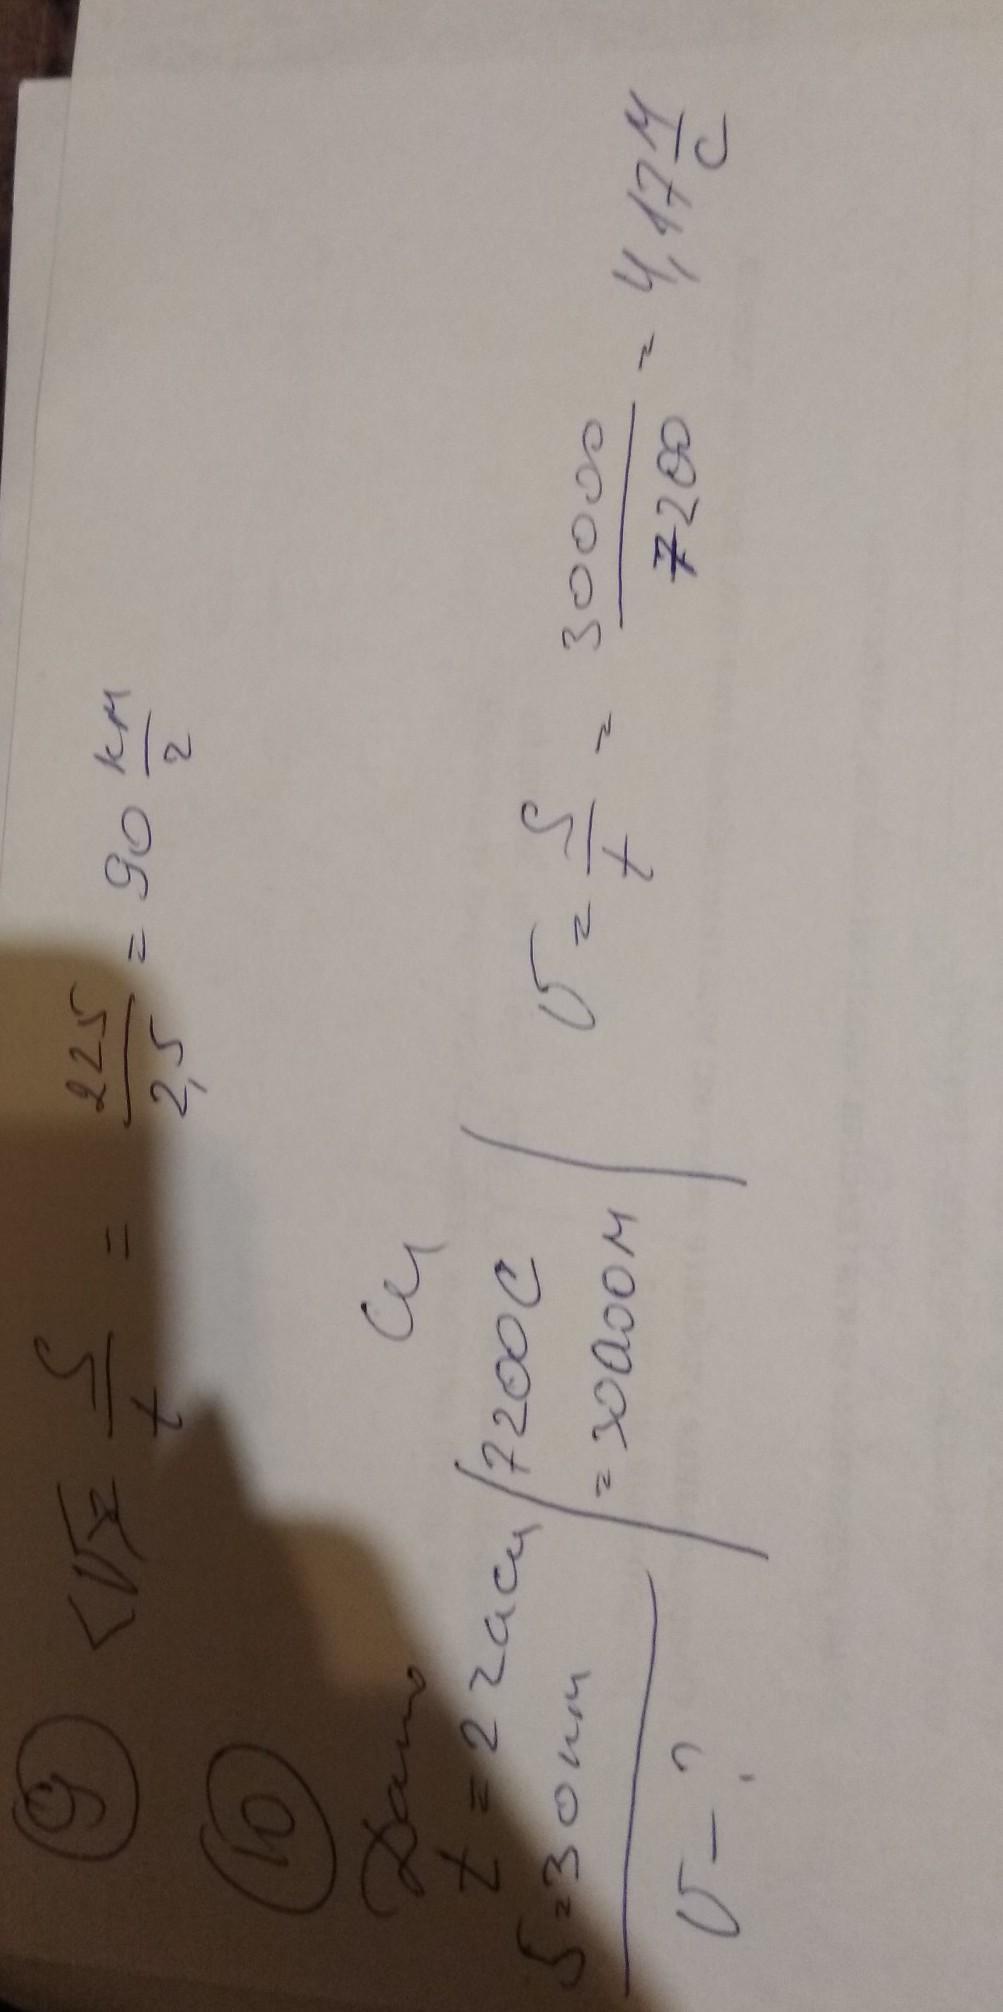 9 <V> = S/t = 225/2,5 = 90 км/г
10
Дано СИ
t = 2 часа 7200 С
S = 30 км = 30000 м
V - ?
V = S/t = 30000/7200 = 4,17 м/с